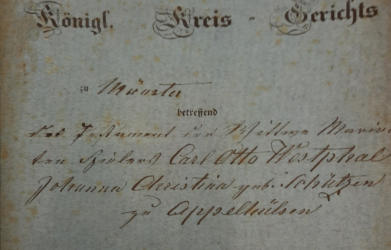 Königl. Kreis-Gerichts
zu Münster
betreffend
das Testament der Wittwe
Carl Otto Westphal
Johanna Christina geb. Schützen
zu Appelhülsen